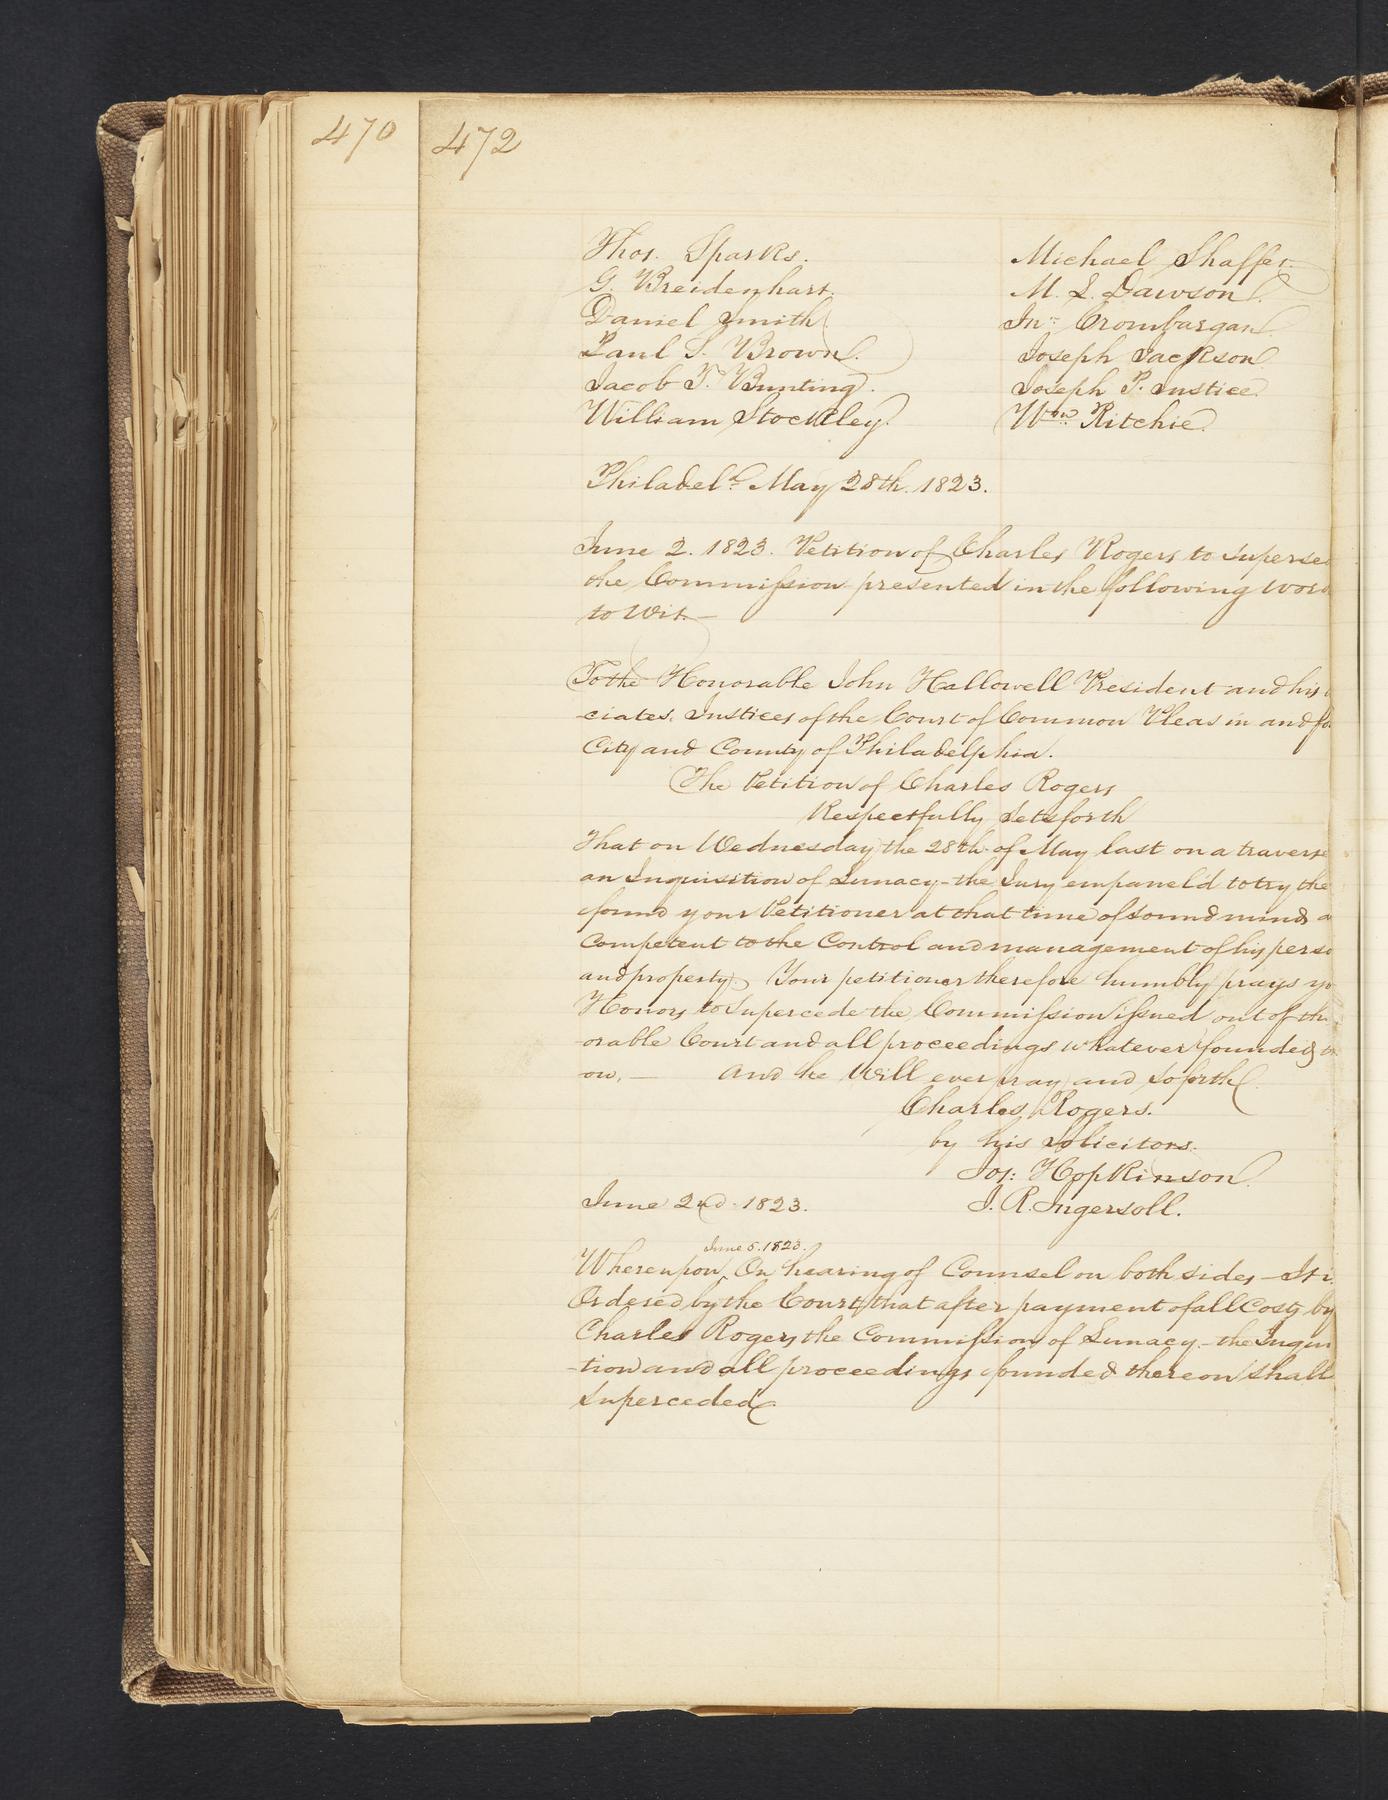 470
472
Thos. Sparks.
Michael Shaffer.
G. Breidenhart.
M. L. Dawson.
Daniel Smith
Jno. Crombargan
Paul S. Brown.
Joseph Jackson.
Jacob T. Bunting.
Joseph P. Justice.
William Stockley.
Wm. Ritchie.
Philadela. May 28th. 1823.
June 2. 1823. Petition of Charles Rogers to supersed
the Commission presented in the following word
to Wit.—
To the Honorable John Hallowell President and his
ciates. Justices of the Court of Common Pleas in and fo
City and County of Philadelphia.
The Petition of Charles Rogers
Respectfully Sets forth
That on Wednesday the 28th. of May last on a traverse
an Inquisition of Lunacy - the Jury empanel'd to try the
found your Petitioner at that time of sound mind a
Competent to the Control and management of his perso
and property. Your petitioner therefore humbly prays yo
Honors to Supercede the Commission issued out of th
orable Court and all proceedings whatever founded th
on. — And he Will ever pray and so forth.
Charles Rogers.
by his Solicitors.
Jos: Hopkinson.
June 2nd. 1823.
J. R. Ingersoll.
June 5. 1823.
Whereupon On hearing of Counsel on both sides - It i
Ordered by the Court that after payment of all Costs by
Charles Rogers the Commission of Lunacy. - the Inqui
-tion and all proceedings founded thereon shall
Superceded